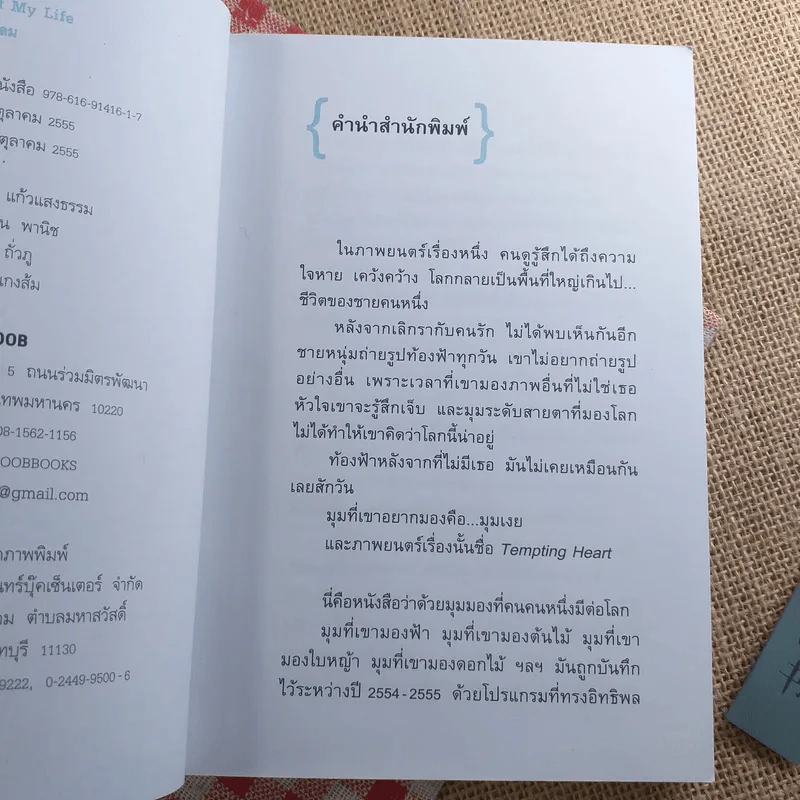 My Life
ลม
978-616-91416-1-7
ตุลาคม 2555
ตุลาคม 2555
แก้วแสงธรรม
พานิช
ถั่วภู
แกงส้ม
OOB
5 ถนนร่วมมิตรพัฒนา
10220
08-1562-1156
OOBBOOKS
@gmail.com
ภาพพิมพ์
บุ๊คเซ็นเตอร์ จำกัด
ตำบลมหาสวัสดิ์
11130
9222, 0-2449-9500-6
{คำนำสำนักพิมพ์}
ในภาพยนตร์เรื่องหนึ่ง คนดูรู้สึกได้ถึงความ
ใจหาย เคว้งคว้าง โลกกลายเป็นพื้นที่ใหญ่เกินไป...
ชีวิตของชายคนหนึ่ง
หลังจากเลิกรากับคนรัก ไม่ได้พบเห็นกันอีก
ชายหนุ่มถ่ายรูปท้องฟ้าทุกวัน เขาไม่อยากถ่ายรูป
อย่างอื่น เพราะเวลาที่เขามองภาพอื่นที่ไม่ใช่เธอ
หัวใจเขาจะรู้สึกเจ็บ และมุมระดับสายตาที่มองโลก
ไม่ได้ทำให้เขาคิดว่าโลกนี้น่าอยู่
ท้องฟ้าหลังจากที่ไม่มีเธอ มันไม่เคยเหมือนกัน
เลยสักวัน
มุมที่เขาอยากมองคือ...มุมเงย
และภาพยนตร์เรื่องนั้นชื่อ Tempting Heart
นี่คือหนังสือว่าด้วยมุมมองที่คนคนหนึ่งมีต่อโลก
มุมที่เขามองฟ้า มุมที่เขามองต้นไม้ มุมที่เขา
มองใบหญ้า มุมที่เขามองดอกไม้ ฯลฯ มันถูกบันทึก
ไว้ระหว่างปี 2554-2555 ด้วยโปรแกรมที่ทรงอิทธิพล